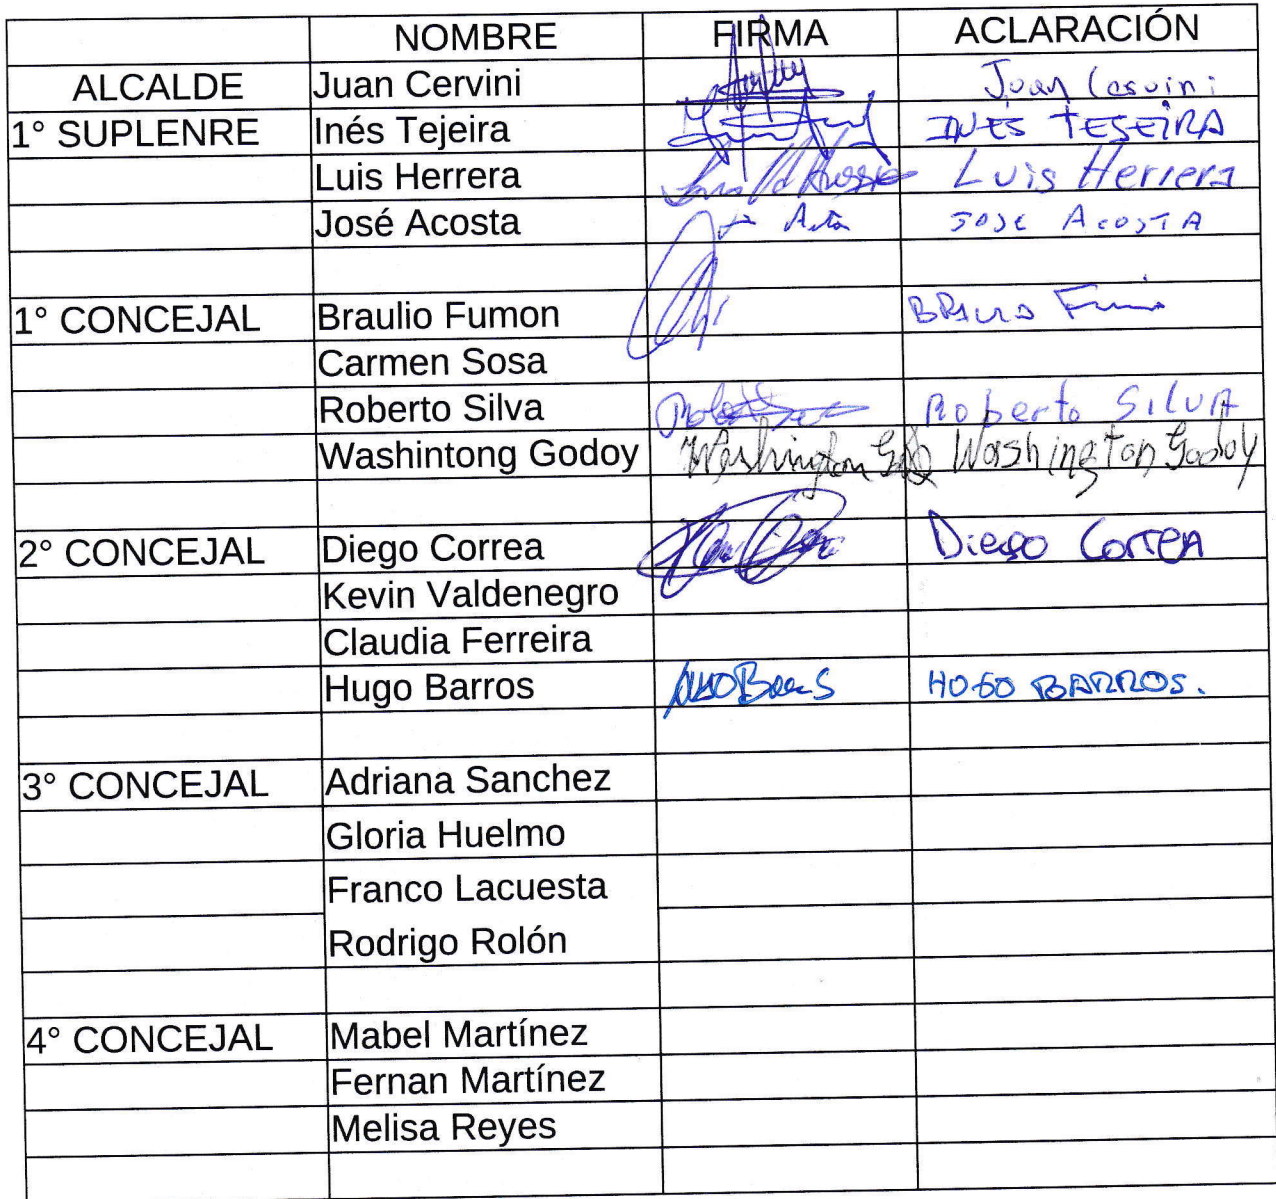 NOMBRE FIRMA ACLARACIÓN
ALCALDE Juan Cervini Juan Cervini
1° SUPLENRE Inés Tejeira INES TEJEIRA
Luis Herrera Luis Herrera
José Acosta JOSE ACOSTA
1° CONCEJAL Braulio Fumon
Carmen Sosa
Roberto Silva Roberto SILVA
Washintong Godoy Washington Washington Godoy
2° CONCEJAL Diego Correa Diego Correa
Kevin Valdenegro
Claudia Ferreira
Hugo Barros HUGO BARROS.
3° CONCEJAL Adriana Sanchez
Gloria Huelmo
Franco Lacuesta
Rodrigo Rolón
4° CONCEJAL Mabel Martínez
Fernan Martínez
Melisa Reyes